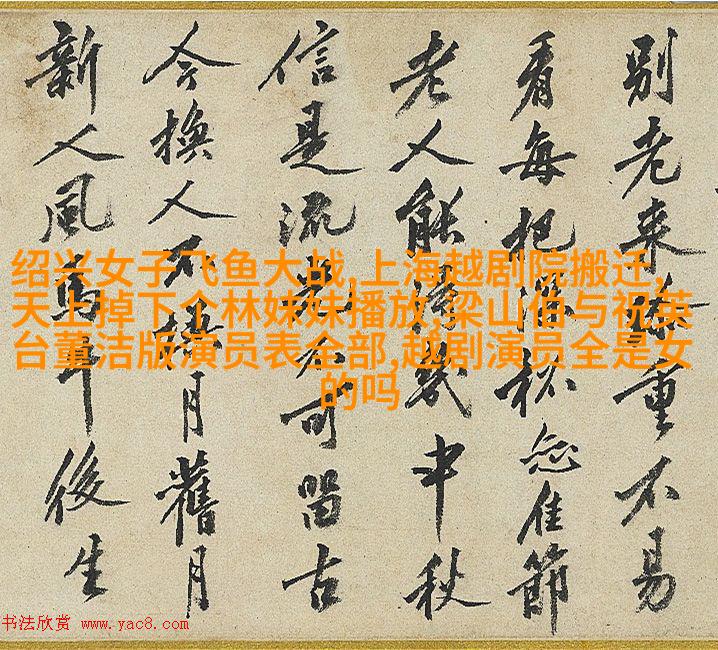 别老来珍重不易
看每把深杯恋佳節
老人能得幾中秋
信是流光不可留古
今換人不換月舊月
新人風馬牛後生
绍兴女子飞鱼大战,上海越剧院搬迁,
天上掉下个林妹妹播放,梁山伯与祝英
台董洁版演员表全部,越剧演员全是女
的吗
书法欣赏 www.yac8.com